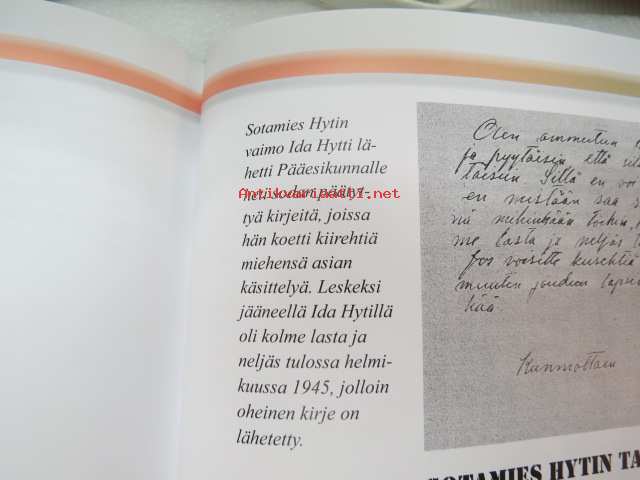 Sotamies Hytin
vaimo Ida Hytti lä-
hetti Pääesikunnalle
heti sodan päätyt-
tyä kirjeitä, joissa
hän koetti kiirehtiä
miehensä asian
käsittelyä. Leskeksi
jääneellä Ida Hytillä
oli kolme lasta ja
neljäs tulossa helmi-
kuussa 1945, jolloin
oheinen kirje on
lähetetty.
Antikvariaatti.net
Olen ammutun
ja pyytäisin että
Sillä en voi
en mistään saa
niä minkään
me lasta ja neljäs
Jos voisitte kiirehtiä
muuten joudun
kää.
Kunnioittaen
SOTAMIES HYTIN TA